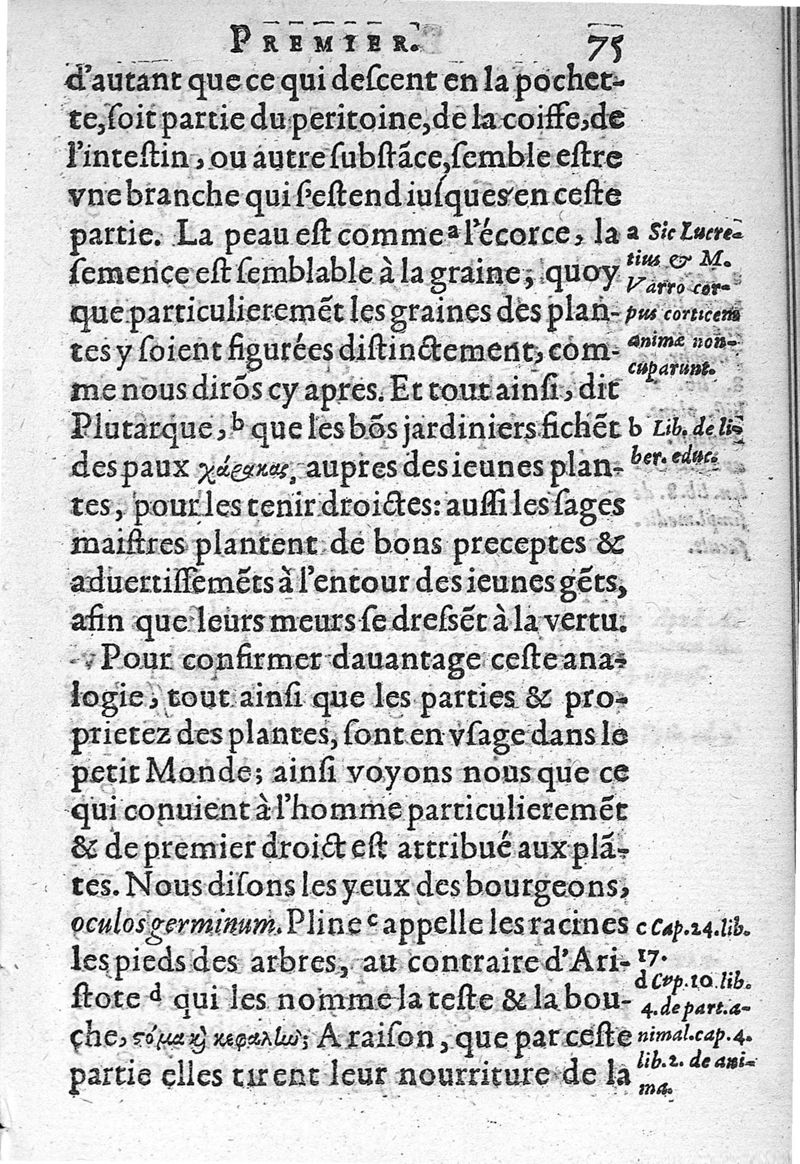 PREMIER. 75
d'autant que ce qui deſcent en la pochet-
te, ſoit partie du peritoine, de la coiffe, de
l'inteſtin, ou autre ſubſtãce, ſemble eſtre
vne branche qui s'eſtend iuſques en ceſte
partie. La peau eſt comme ª l'écorce, la
ſemence eſt ſemblable à la graine, quoy
que particulieremẽt les graines des plan-
tes y ſoient figurées diſtinctement, com-
me nous dirõs cy apres. Et tout ainſi, dit
Plutarque, ᵇ que les bõs jardiniers fichẽt
des paux χάρακας, aupres des ieunes plan-
tes, pour les tenir droictes: auſſi les ſages
maiſtres plantent de bons preceptes &
aduertiſſemẽts à l'entour des ieunes gẽts,
afin que leurs meurs ſe dreſsẽt à la vertu.
Pour confirmer dauantage ceſte ana-
logie, tout ainſi que les parties & pro-
prietez des plantes, ſont en vſage dans le
petit Monde; ainſi voyons nous que ce
qui conuient à l'homme particulieremẽt
& de premier droict eſt attribué aux plã-
tes. Nous diſons les yeux des bourgeons,
oculos germinum. Pline ᶜ appelle les racines
les pieds des arbres, au contraire d'Ari-
ſtote ᵈ qui les nomme la teſte & la bou-
che, ϛόμα κ̀ κεφαλὼ; A raiſon, que par ceſte
partie elles tirent leur nourriture de la
a Sic Lucre-
tius & M.
Varro cor-
pus corticem
animæ non-
cuparunt.
b Lib. de li-
ber. educ.
c Cap. 24. lib.
17.
d Cap. 10. lib.
4. de part. a-
nimal. cap. 4.
lib. 2. de ani-
ma.